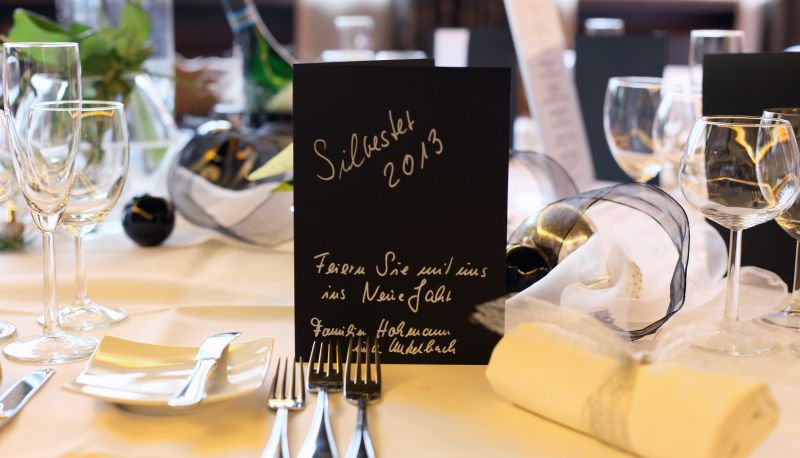 Silvester
2013
Feiern Sie mit uns
ins Neue Jahr
Familien Hohmann